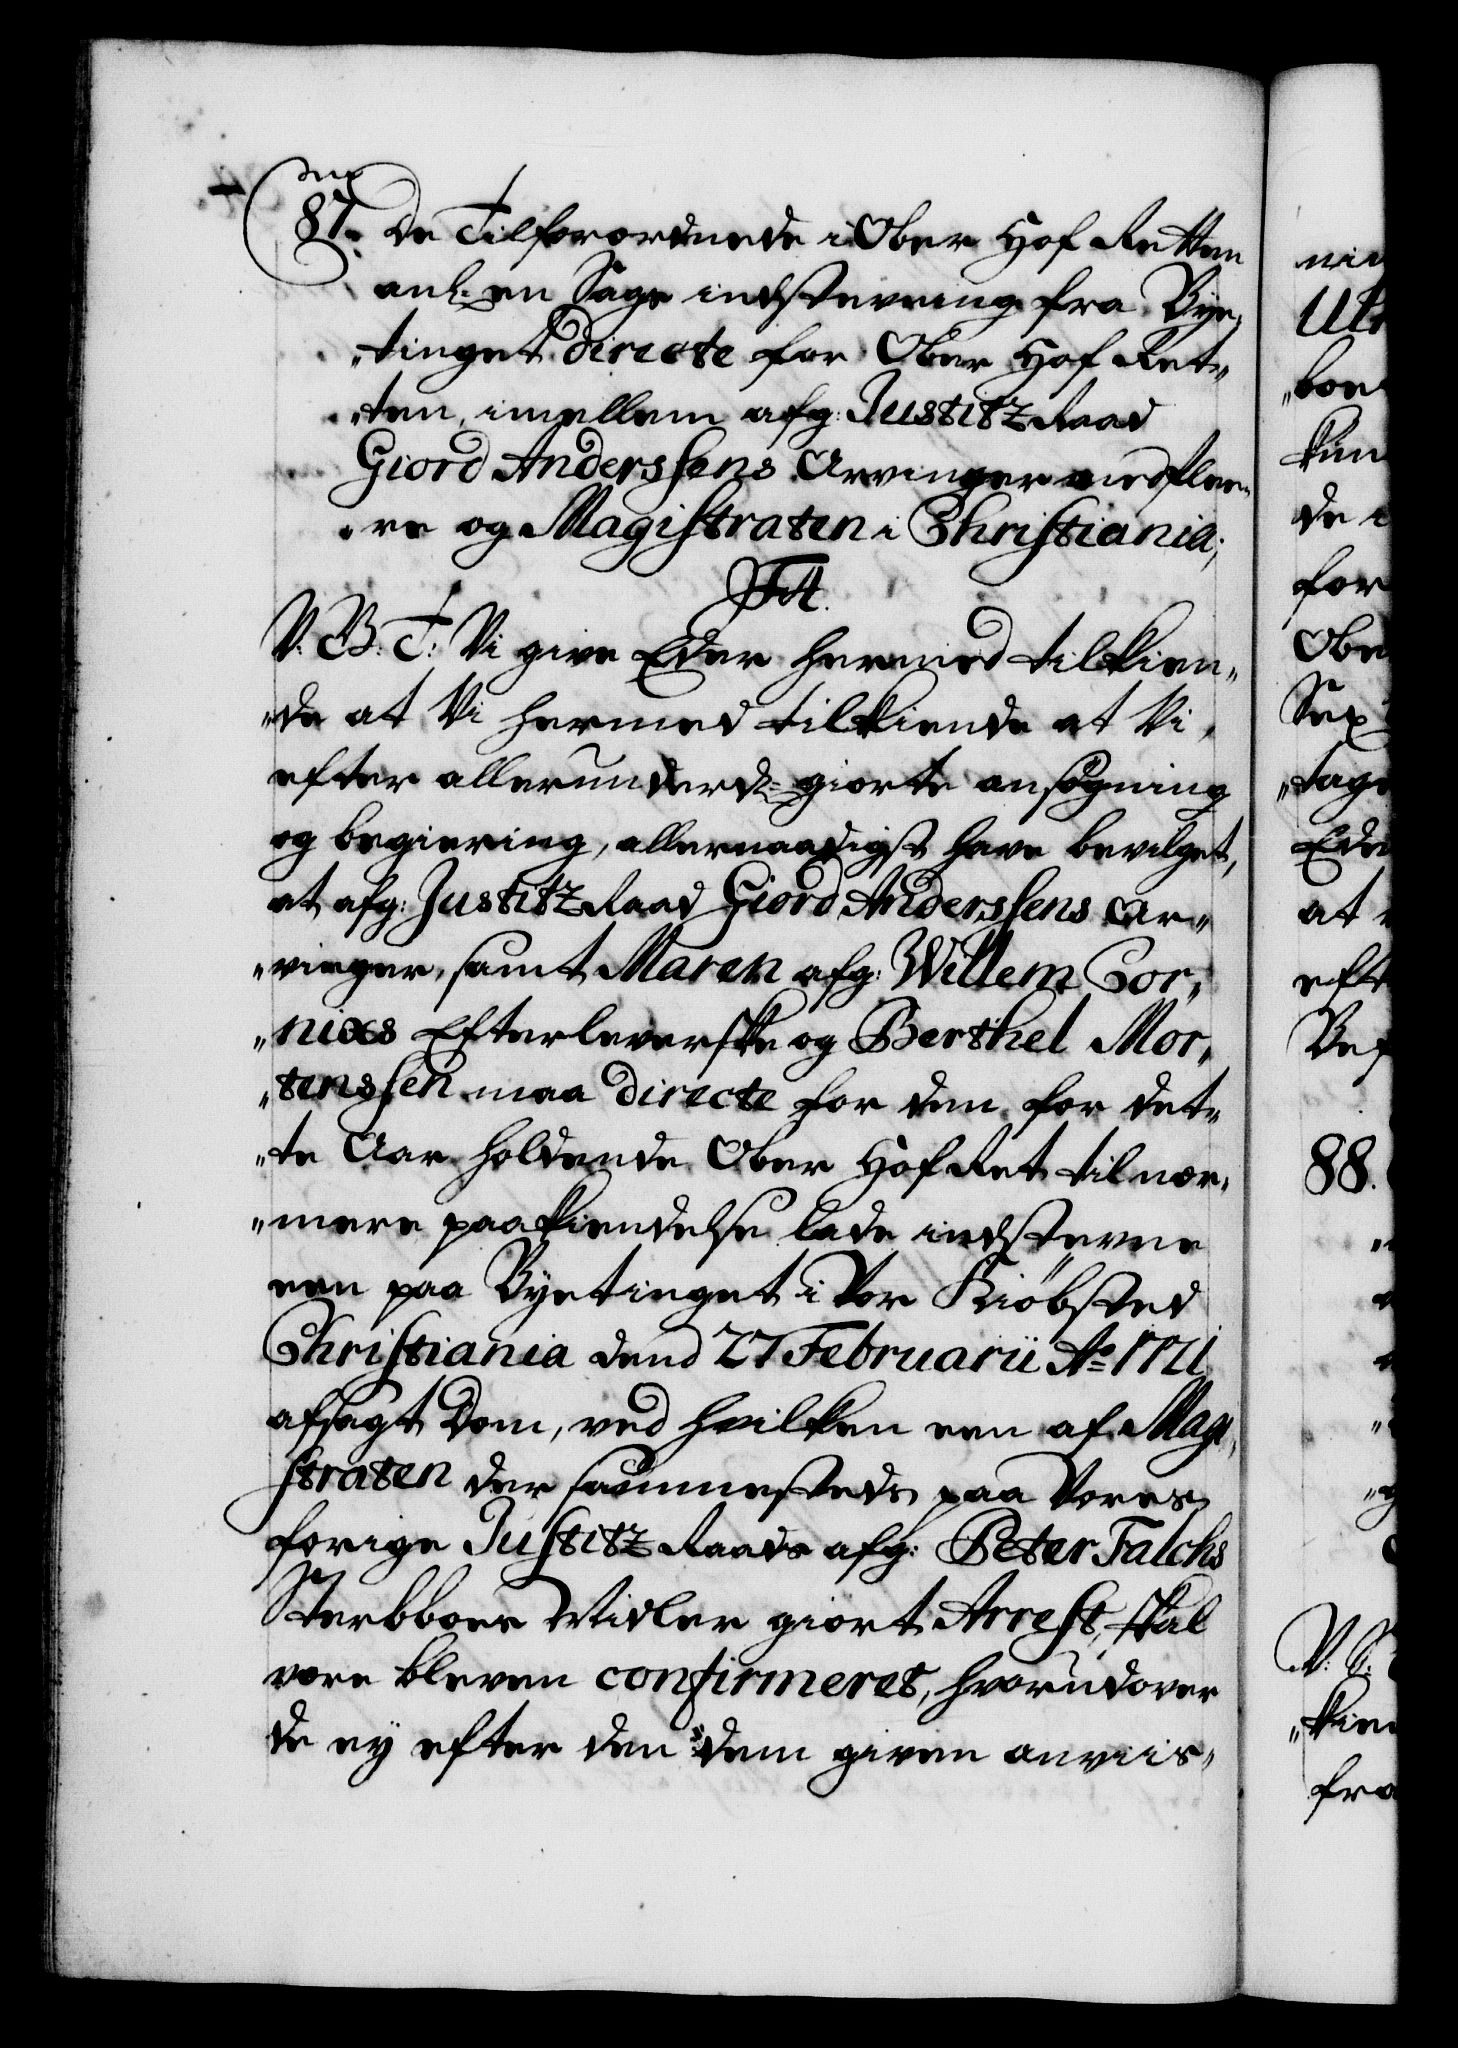 87. De Tilforordnede i Ober Hof Retten
anl: en Sags indstevning fra Bye„
„tinget directe for Ober Hof Ret„
„ten, imellem afg: Justitz Raad
Giord Anderssens Arvinger med flee„
„re og Magistraten i Christiania;
F 4.
V. G. T: Vi give Eder hermed tilkien„
„de at Vi hermed tilkiende at Vi,
efter allerunderd: giorte ansøgning
og begiering, allernaadigst have bevilget,
at afg: Justitz Raad Giord Anderssens Ar„
„vinger, samt Maren afg: Willem Cor„
„nixs Efterleverske og Berthel Mor„
„tenssen maa directe for den for det„
„te Aar holdende Ober Hof Ret til nær„
„mere paakiendelse lade indstevne
een paa Byetinget i Vor Kiöbsted
Christiania dend 27 Februarii Ao 1721
afsagt Dom, ved hvilken een af Magi„
straten der sammesteds paa Vores
forige Justitz Raads afg: Peter Falchs
Sterbboes Midler giort Arrest, skal
være bleven confirmeret, hvorudover
de ey efter den dem given anviis„
88.